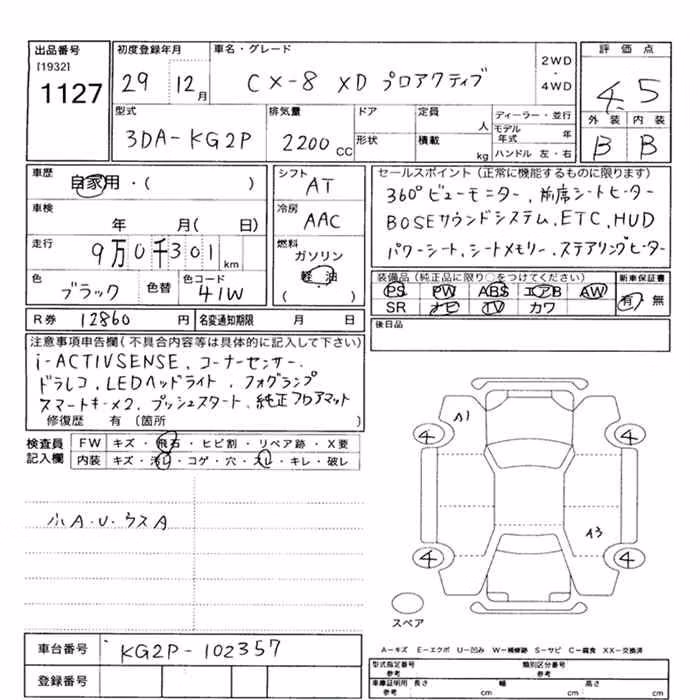 出品番号
[1932]
1127
初度登録年月
29 12月
車名・グレード
CX-8 XD プロアクティブ
2WD
・
4WD
評価点
4.5
外装 内装
B B
型式
3DA-KG2P
排気量
2200 CC
ドア
形状
定員
人
積載
kg
ディーラー・並行
モデル年式 年
ハンドル 左・右
車歴
自家用・( )
車検
年 月( 日)
走行
9万0千301 km
色
ブラック
色替
色コード
41W
シフト
AT
冷房
AAC
燃料
ガソリン
軽油
( )
セールスポイント(正常に機能するものに限ります)
360°ビューモニター、前席シートヒーター
BOSEサウンドシステム、ETC、HUD
パワーシート、シートメモリー、ステアリングヒーター
装備品(純正品に限り○をつけてください)
PS PW ABS エアB AW
SR ナビ TV カワ
新車保証書
有・無
Ｒ券 12860 円 名変通知期限 月 日
後日品
注意事項申告欄(不具合内容等は具体的に記入して下さい)
i-ACTIVSENSE、コーナーセンサー、
ドラレコ、LEDヘッドライト、フォグランプ
スマートキー×2、プッシュスタート、純正フロアマット
修復歴 有 〔箇所 〕
検査員
記入欄
FW キズ・飛石・ヒビ割・リペア跡・X要
内装 キズ・汚レ・コゲ・穴・スレ・キレ・破レ
小A・U・ウスA
A1
4
4
4
4
A3
スペア
車台番号 KG2P-102357
登録番号
A－キズ E－エクボ U－凹み W－補修跡 S－サビ C－腐食 XX－交換済
型式指定番号
参考
類別区分番号
参考
車庫証明用
参考
長さ cm 幅 cm 高さ cm